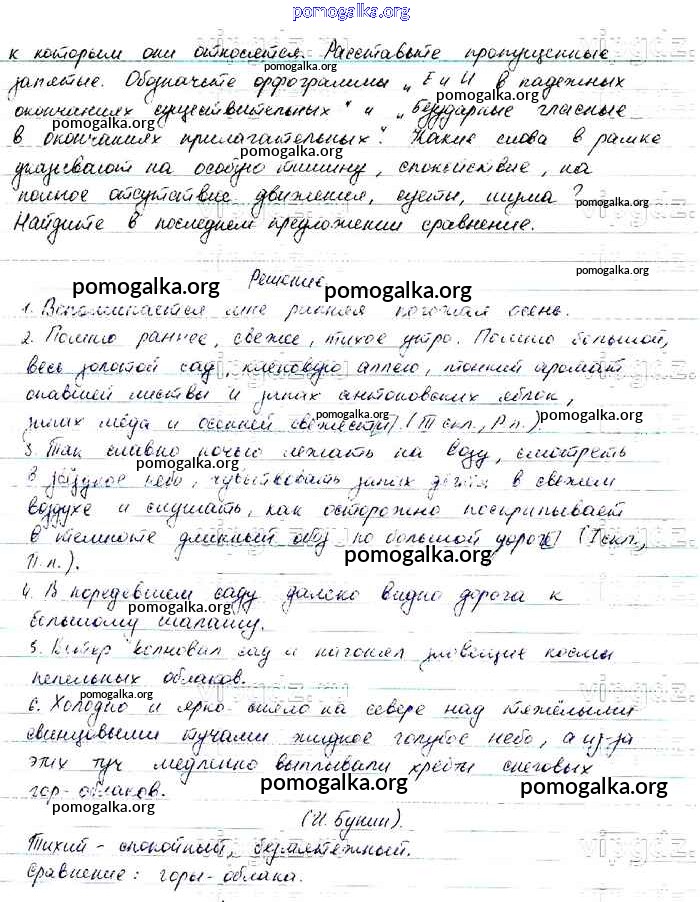 pomogalka.org
к которым они относятся. Расставьте пропущенные
pomogalka.org
запятые. Обозначьте орфограммы „Е и И в падежных
pomogalka.org
окончаниях существительных" и „Безударные гласные
pomogalka.org
в окончаниях прилагательных". Какие слова в рамке
pomogalka.org
указывают на особую тишину, спокойствие, на
полное отсутствие движения, суеты, шума?
pomogalka.org
Найдите в последнем предложении сравнение.
pomogalka.org
Решение
pomogalka.org pomogalka.org
1. Вспоминается мне ранняя погожая осень.
2. Помню раннее, свежее, тихое утро. Помню большой,
весь золотой сад, кленовую аллею, тонкий аромат
опавшей листвы и запах антоновских яблок,
pomogalka.org
запах мёда и осенней свежести (III скл., Р.п.).
pomogalka.org
3. Так славно ночью лежать на возу, смотреть
pomogalka.org
в звёздное небо, чувствовать запах дёгтя в свежем
pomogalka.org
воздухе и слушать, как осторожно поскрипывает
в темноте длинный обоз по большой дороге (I скл.,
pomogalka.org
П.п.).
4. В поредевшем саду далеко видна дорога к
pomogalka.org
большому шалашу.
5. Ветер волновал сад и нагонял зловещие космы
пепельных облаков.
pomogalka.org
vipgdz.ru
6. Холодно и ярко сияло на севере над тяжёлыми
pomogalka.org
свинцовыми тучами жидкое голубое небо, а из-за
pomogalka.org
этих туч медленно выплывали хребты снеговых
pomogalka.org pomogalka.org
гор-облаков.
pomogalka.org
(И. Бунин).
Тихий - спокойный, безмятежный.
pomogalka.org
Сравнение: горы-облака.